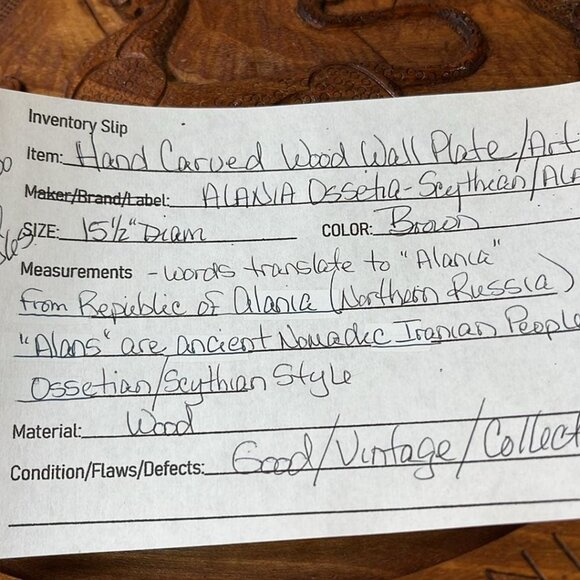 Inventory Slip
Item: Hand Carved Wood Wall Plate/Art
Maker/Brand/Label: ALANIA Ossetia-Scythian/ALA
SIZE: 15½" Diam COLOR: Brown
Measurements - words translate to "Alania"
from Republic of Alania (Northern Russia)
"Alans" are ancient Nomadic Iranian People
Ossetian/Scythian Style
Material: Wood
Condition/Flaws/Defects: Good/Vintage/Collect